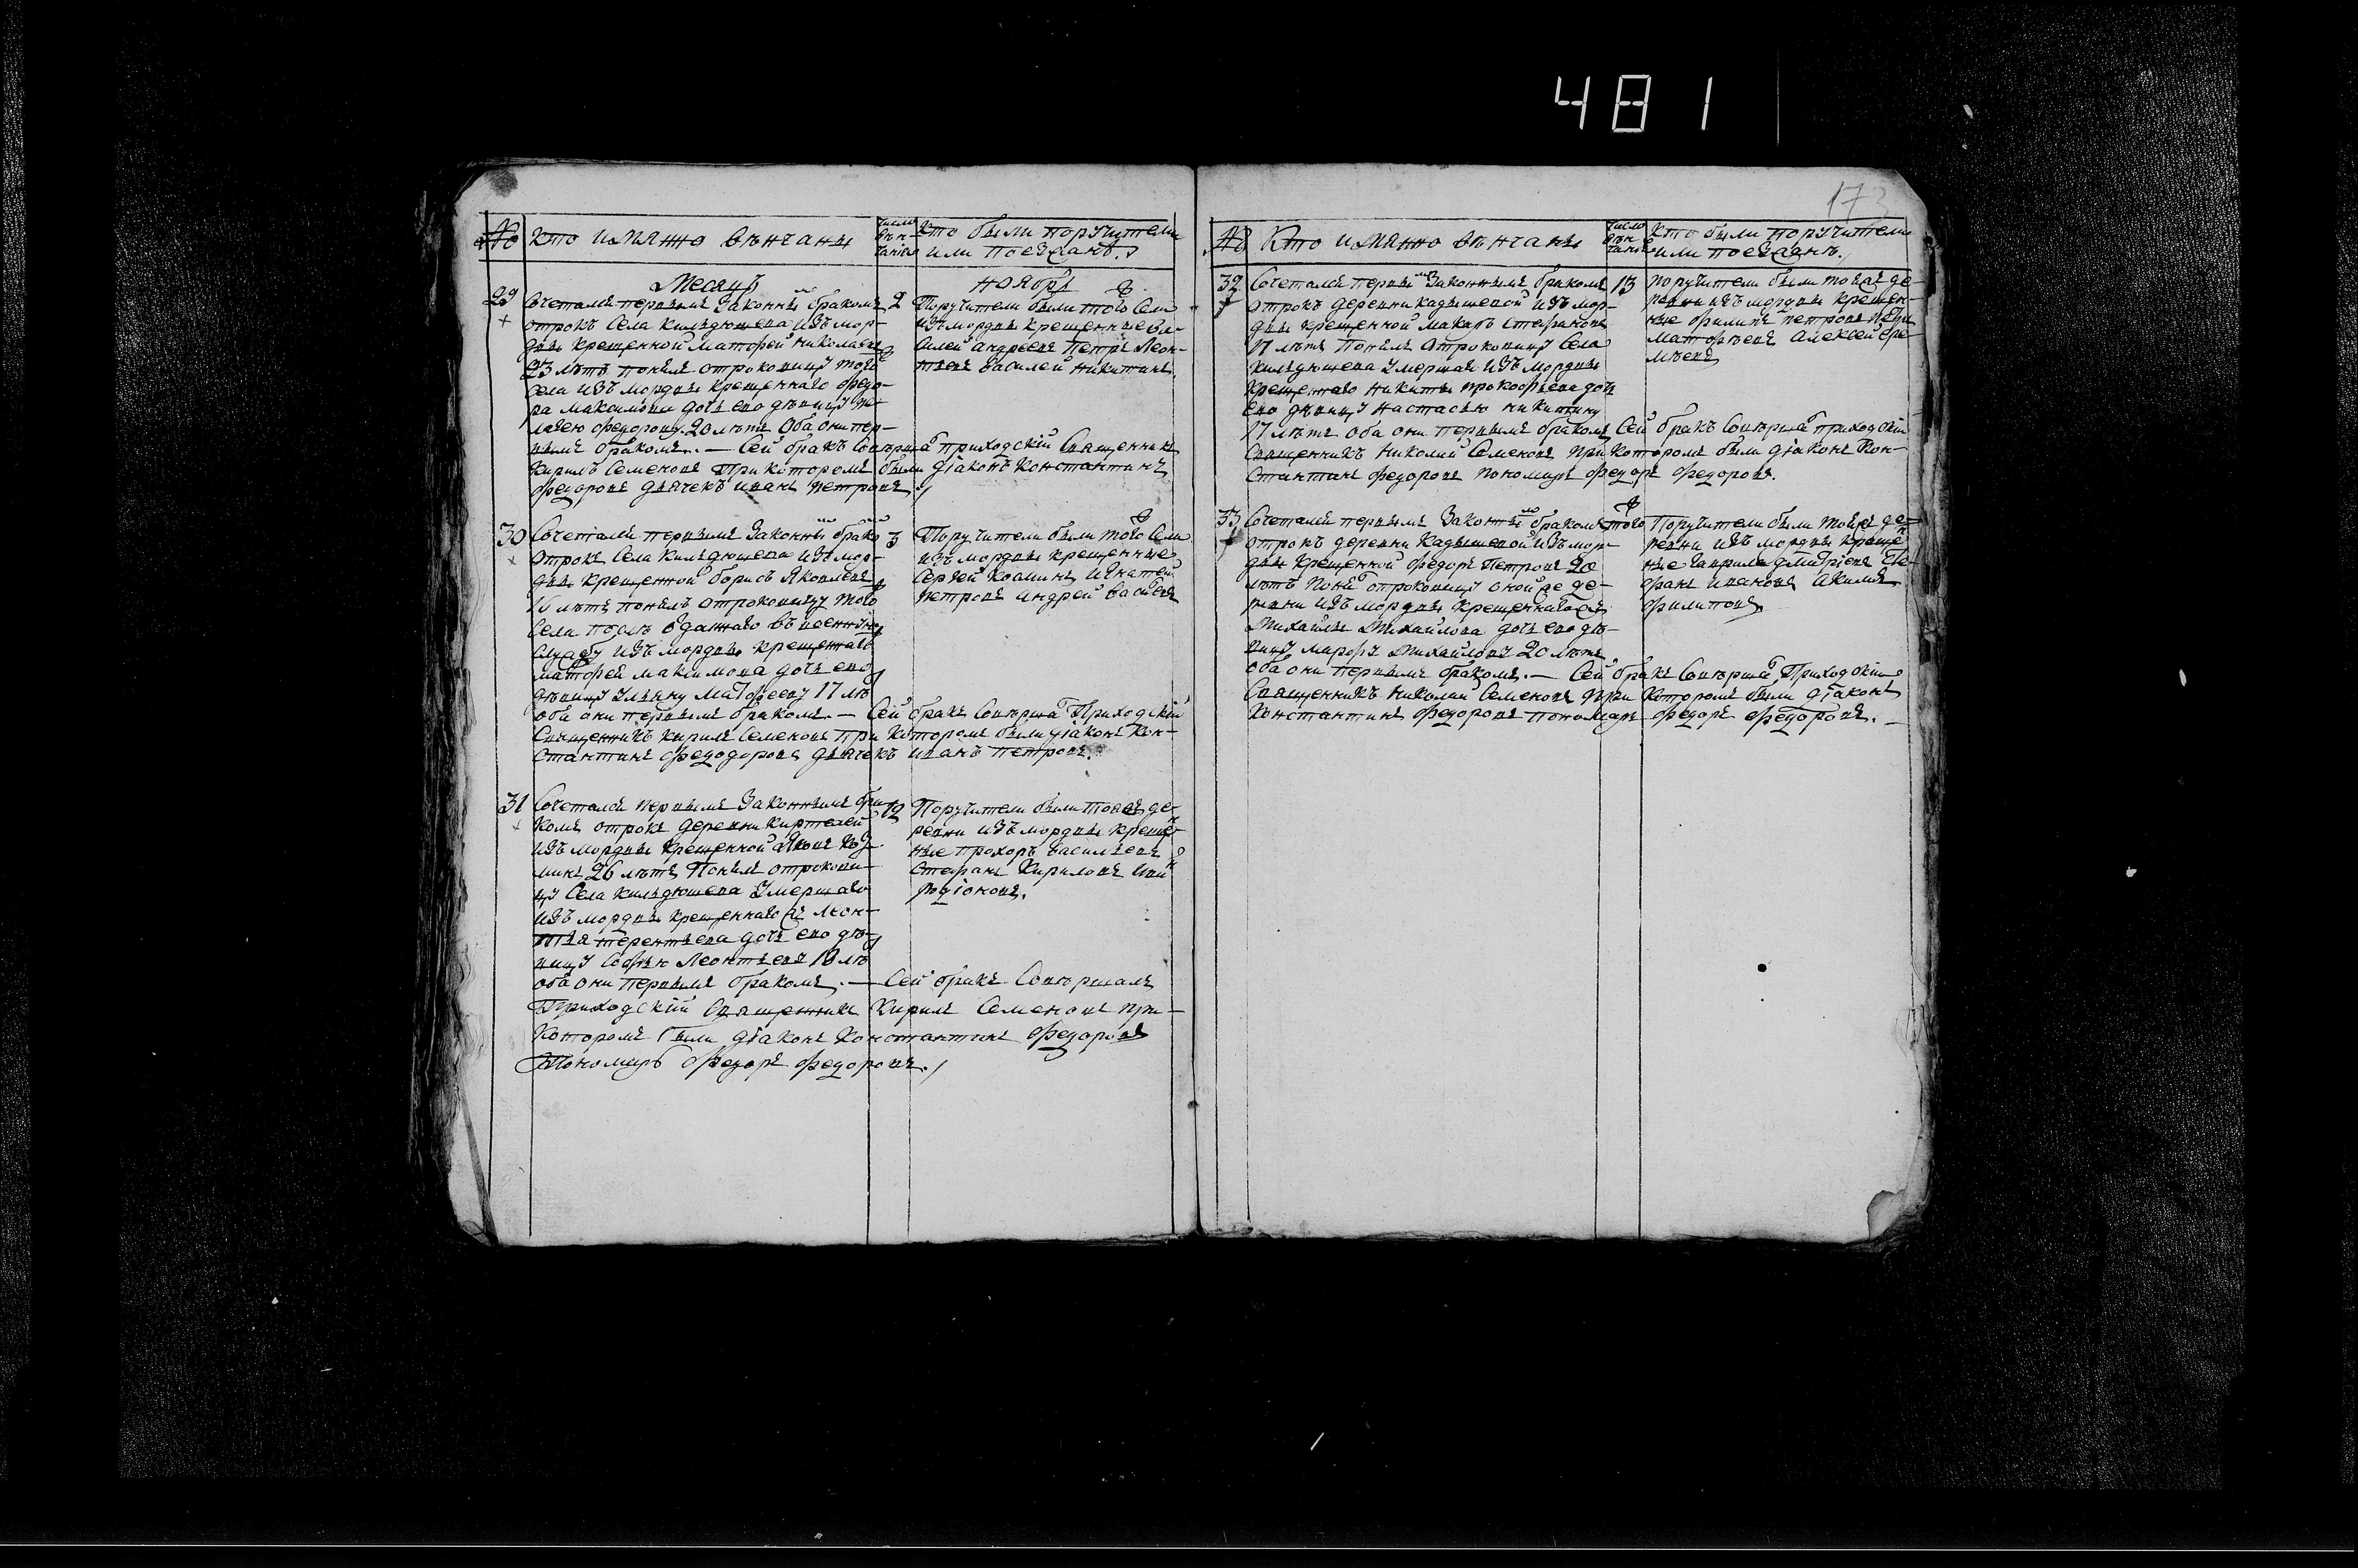 481
173
№ Кто имянно вѣнчаны
число вѣнчанія
кто были поручители
или поезжанѣ
Месяцъ ноябрь
29 Сочетался первымъ законнымъ бракомъ 2
отрокъ Села Кильдюшева изъ мор-
двы крещенной Матфей Николаевъ
23 лѣтъ понялъ отроковицу того
Села изъ мордвы крещеннаго федо-
ра Максимова дочь ево дѣвицу
федорову 20 лѣтъ Оба они пер-
вымъ бракомъ. — Сей бракъ Совершилъ приходскій Священникъ
Кирилъ Семеновъ При которомъ были діаконъ Константинъ
федоровъ дьячекъ иванъ петровъ
Поручители были того Села
изъ мордвы крещенные Ва-
силей андреевъ Петръ Леон-
тьевъ Василей Никитинъ
30 Сочетался первымъ Законнымъ бракомъ 3
Отрокъ Села Кильдюшева изъ мор-
двы крещенной борисъ Яковлевъ
лѣтъ понялъ отроковицу того
Села послѣ одданнаго въ военную
службу изъ мордвы крещеннаго
матфея максимова дочь ево
дѣвицу Ульяну Матфееву 17 лѣ
оба они первымъ бракомъ. — Сей бракъ Совершилъ Приходскій
Священникъ Кирилъ Семеновъ При Которомъ были діаконъ Кон-
стантинъ федодоровъ дьячекъ иванъ петровъ.
Поручители были того Села
изъ мордвы крещенные
Сергей Козминъ Игнатей
петровъ андрей васильевъ
31 Сочетался первымъ Законнымъ бра- 12
комъ отрокъ деревни Киртелей
изъ мордвы крещенной Яковъ Коз-
минъ 26 лѣтъ Понялъ отрокови-
цу Села Кильдюшева Умершаго
изъ мордвы крещеннаго Леон-
тья терентьева дочь ево дѣ-
вицу Софью Леонтьеву 18 лѣ
оба они первымъ бракомъ. — Сей бракъ Совершилъ
Приходскій Священникъ Кирилъ Семеновъ при-
Которомъ были діаконъ Константинъ федоровъ
Пономарь федоръ федоровъ.
Поручители были тоя же де-
ревни изъ мордвы креще-
ные прохоръ васильевъ
Стефанъ Кириловъ
родіоновъ.
№ Кто имянно вѣнчаны
число вѣнчанія
кто были поручители
или поезжанѣ.
32 Сочетался первымъ Законнымъ бракомъ 13
отрокъ деревни Кадышевой изъ мор-
двы крещенной макаръ Стефановъ
17 лѣтъ Понялъ Отроковицу Села
Кильдюшева Умершаго изъ мордвы
крещеннаго никиты прокофьева дочь
ево дѣвицу настасью никитину
17 лѣтъ Оба они первымъ бракомъ Сей бракъ Совершилъ приходскій
Священникъ Николай Семеновъ при Которомъ были діаконъ Кон-
стантинъ федоровъ пономарь федоръ федоровъ.
поручители были тоя же де-
ревни изъ мордвы крещен-
ные филипъ петровъ
матфѣевъ алексей
33 Сочетался первымъ Законнымъ бракомъ того
отрокъ деревни Кадышевой изъ мор-
двы крещенной федоръ Петровъ 20
лѣтъ Понялъ отроковицу оной же де-
ревни изъ мордвы крещеннаго
Михайлы Михайлова дочь ево дѣ-
вицу марфу михайлову 20 лѣтъ
оба они первымъ бракомъ. — Сей бракъ Совершилъ Приходскій
Священникъ Николай Семеновъ При Которомъ были діаконъ
Константинъ федоровъ пономарь федоръ федоровъ.
Поручители были той же де-
ревни изъ мордвы креще-
ные гаврила дмитріевъ Сте-
фанъ ивановъ акимъ
филиповъ